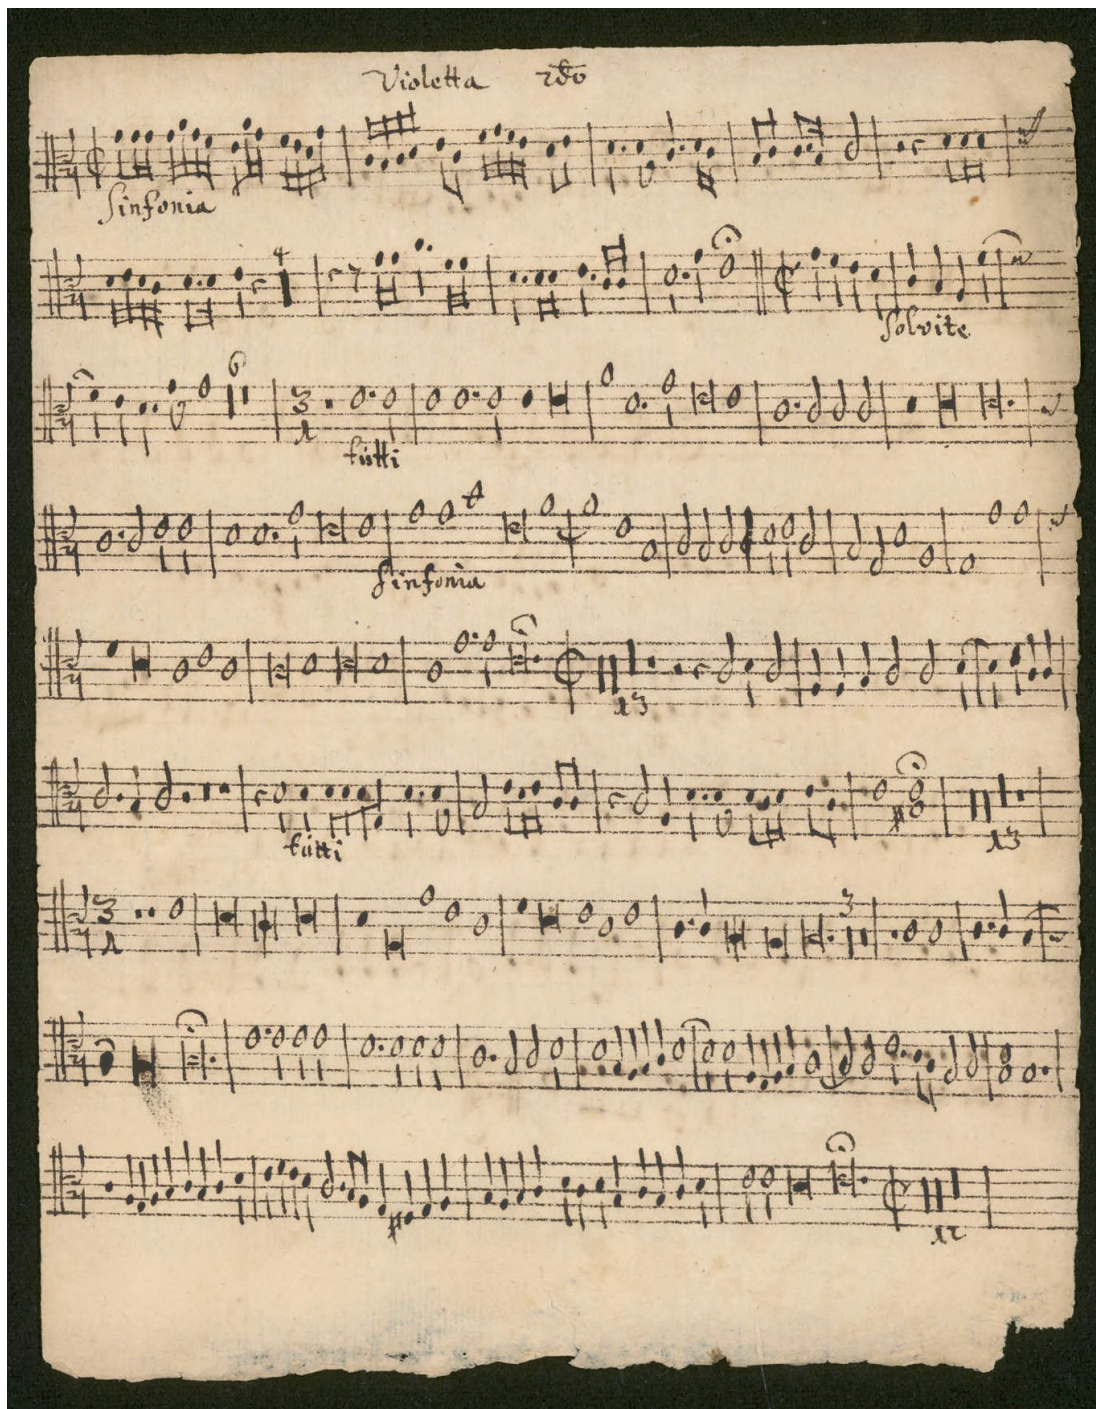 Violetta 2do
Sinfonia
4
Solvite
6
3
1
tutti
Sinfonia
13
tutti
13
3
1
3
12